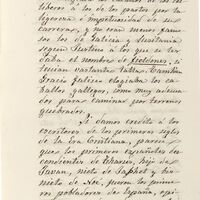 líberos à los de los partos, por la
ligereza é impetuosidad de su
carrera, y no eran menos famo-
sos los de Galicia y Lusitania
segun Justino à los que se les
daba el nombre de fieldones, i
tenian bastante
Gracio Falisco elogiaba los ca-
ballos gallegos, como muy adecua-
dos para caminar por terreno
quebrados.
Si damos credito à los
escritores de los primeros siglos
de la Era Cristiana, parece
que los primeros españoles des-
cendientes de Tharsis, hijo de
Javan, nieto de Japhet y biz-
nieto de Noé, fueron los primeros
pobladores de España, que